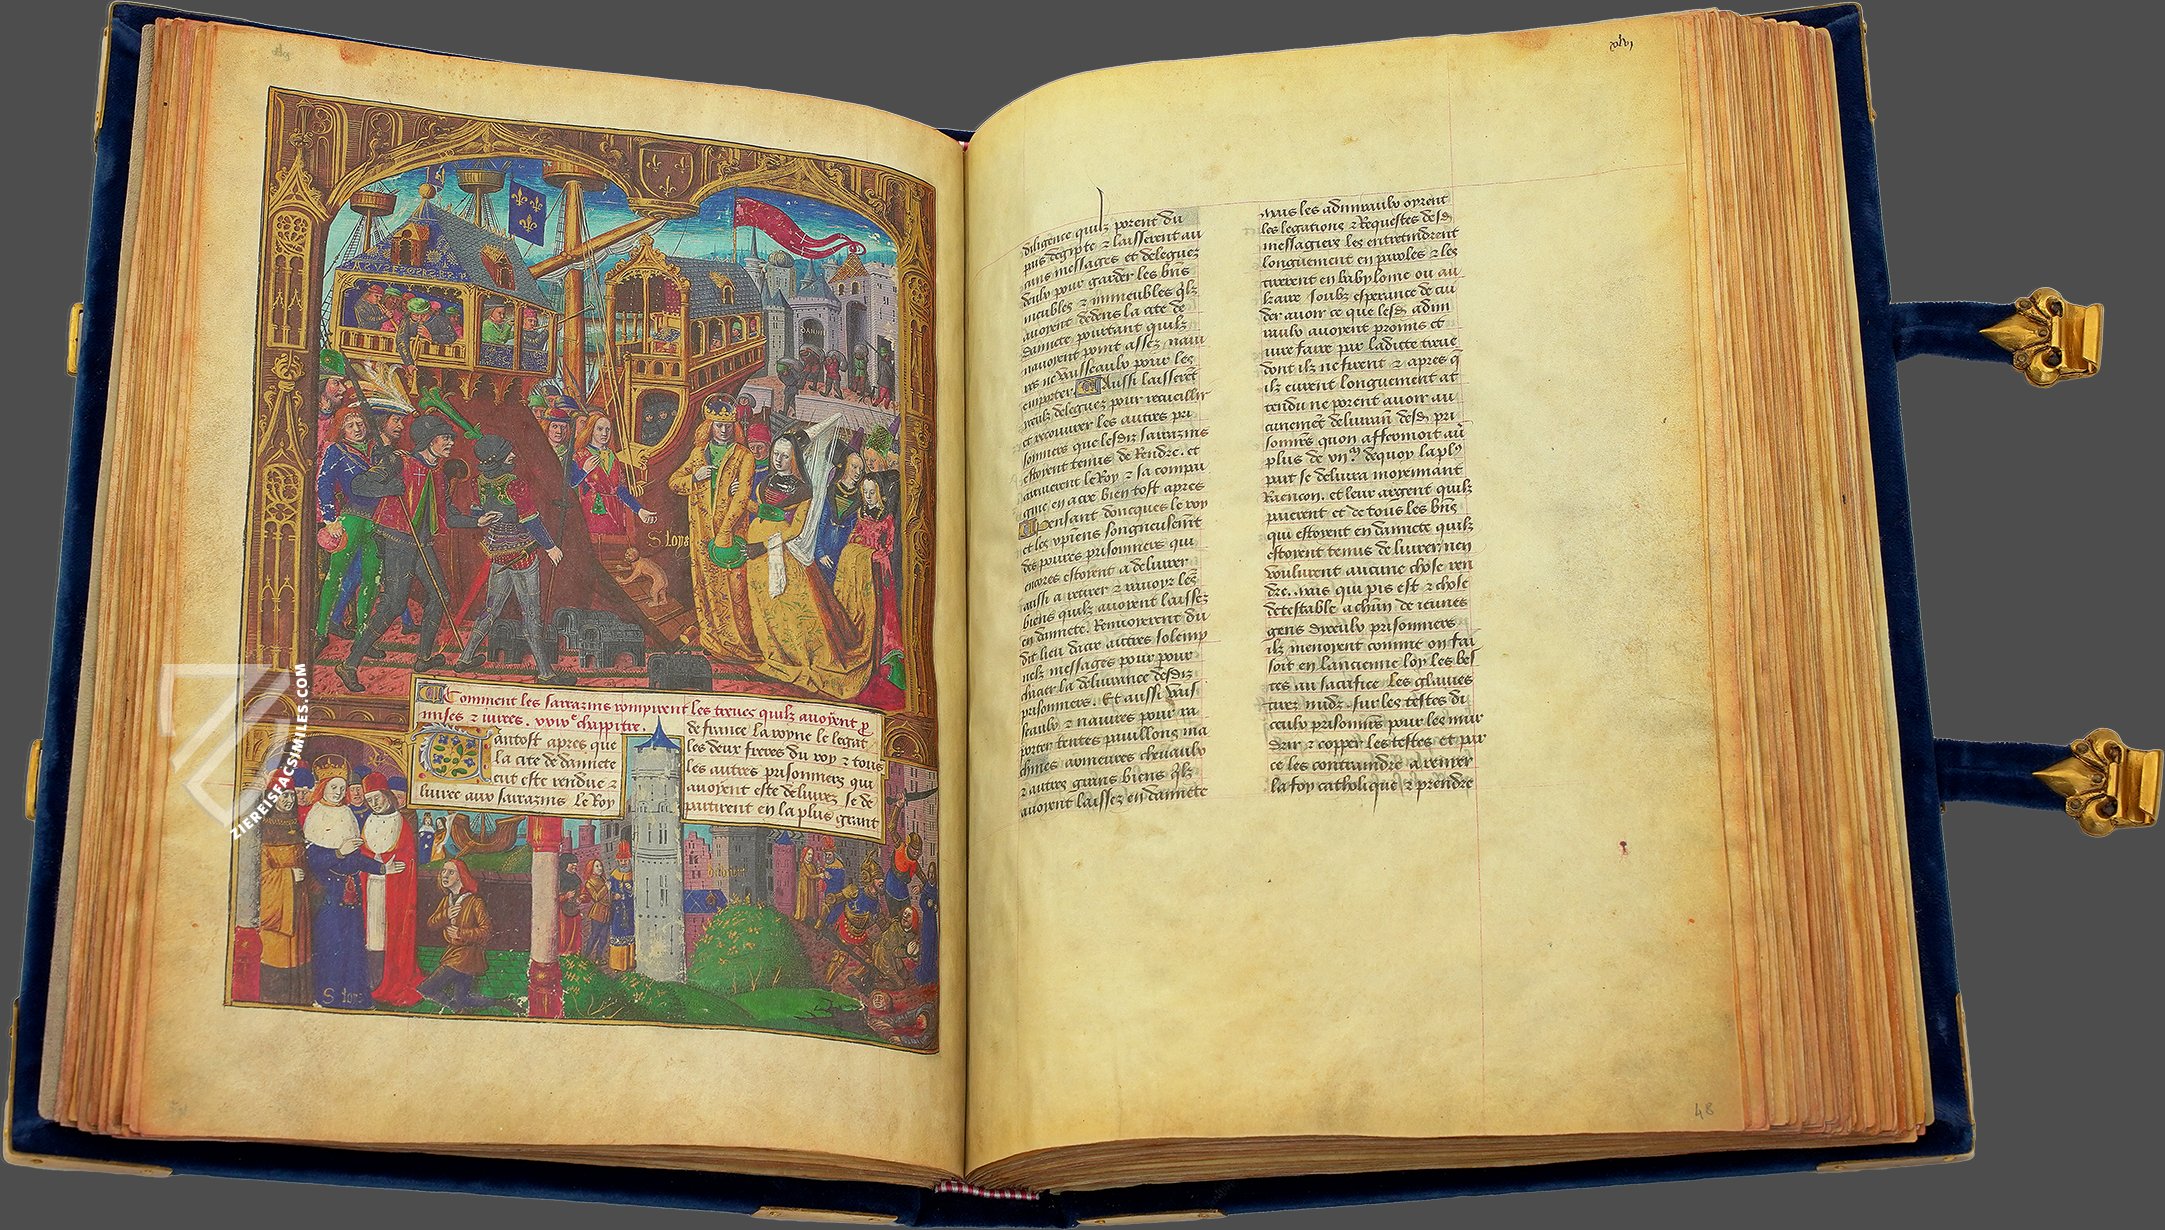 DAMIE
S. Loys
Comment les sarrazins rompirent les treues quilz auoyent p
mises & iurees. xxixe chappitre.
Tantost apres que
la cite de damiete
eut este rendue &
liuree aux sarazins Le Roy
de france la royne le legat
les deux freres du roy & tous
les autres prisonniers qui
auoyent este deliurez se de
partirent en la plus grant
S. loys
ZIEREISFACSIMILES.COM
diligence quilz porent du
pais degipte & laisserent au
cuns messages et deleguez
deulx pour garder les bns
meubles & immeubles qlz
auoyent dedens la cite de
damiete pourtant quilz
nauoyent point assez naui
res ne vaisseaulx pour les
emporter Aussi laisserent
iceulz deleguez pour recueillir
et recouurer les autres pri
sonniers que lesdiz sarazins
estoyent tenus de Rendre. et
arriuerent le Roy & sa compai
gnie en acre bien tost apres
Pensant doncques le roy
et les xpiens songneusemt
des poures prisonniers qui
encores estoyent a deliurer
aussi a retirer & rauoyr les
biens quilz auoyent laissez
en damiete. Renuoyerent du
dit lieu dacre autres solemp
nelz messages pour pour
chacer la deliurance desdiz
prisonniers. Et aussi vais
seaulx & nauires pour ra
porter tentes pauillons ma
chines armeures cheuaulx
& autres grans biens qlz
auoyent laissez en damiete
Mais les admiraulx oyrent
les legations & Requestes desd
messagiers les entretindrent
longuement en paroles & les
tindrent en babylonie ou au
kaire soubz esperance de cui
der auoir ce que lesd admi
raulx auoyent promis et
iure faire par laditte treue
dont ilz ne firent & apres q
ilz eurent longuement at
tendu ne porent auoir au
cunemt deliuran desd pri
sonniers quon affermoit au
plus de xiim dequoy la pl9
part se deliura moyennant
Raencon. et leur argent quilz
paierent et de tous les bns
qui estoyent en damiete quilz
estoyent tenus de liurer nen
voulurent aucune chose ren
dre. Mais qui pis est & chose
detestable a chun de ieunes
gens diceulx prisonniers
ilz menoyent comme on fai
soit en lancienne loy les bes
tes au sacrifice les glaiues
tirez nudz sur les testes di
ceulx prisonniers pour les mur
drir & copper les testes et par
ce les contraindre a renier
la foy catholique & prendre
48